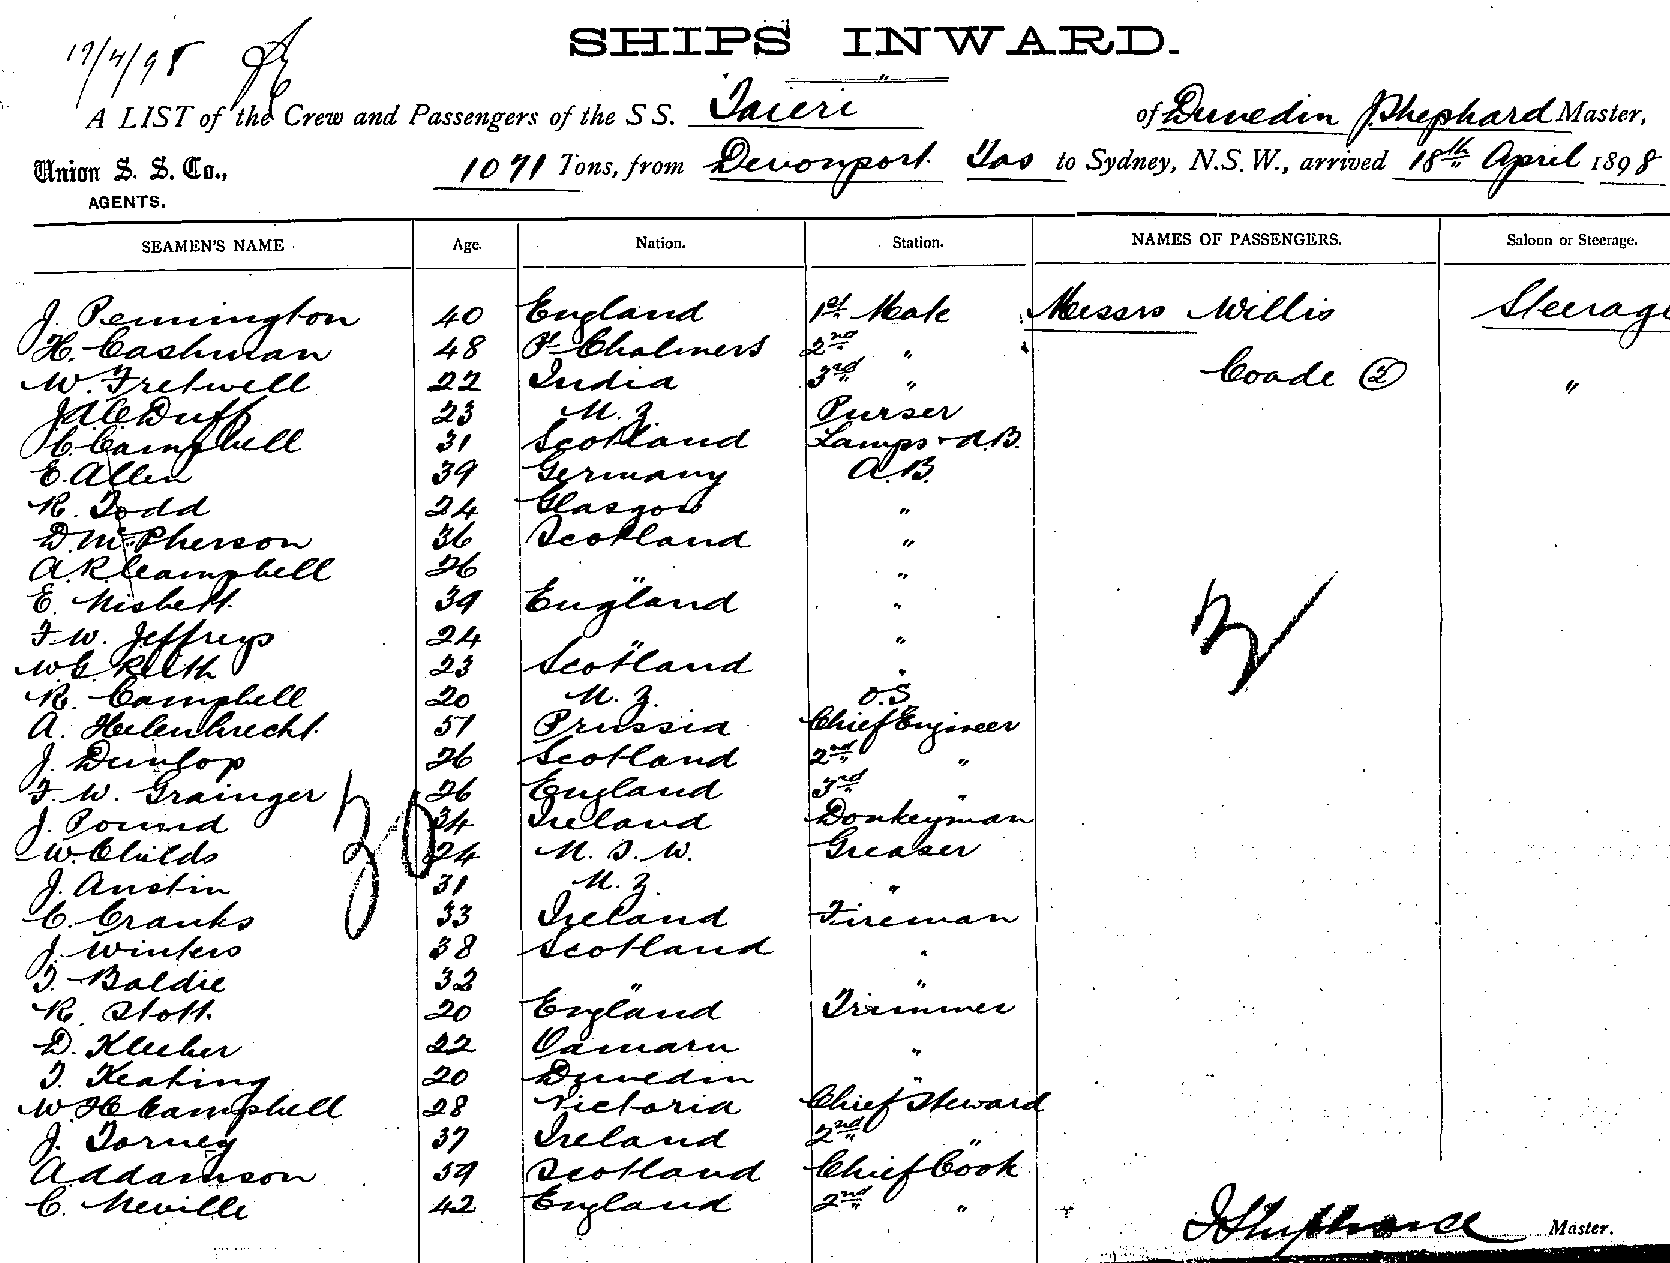 17/4/98
SHIPS INWARD.
A LIST of the Crew and Passengers of the S S. Taieri of Dunedin J Shephard Master,
Union S. S. Co., 1071 Tons, from Devonport Tas to Sydney, N.S.W., arrived 18th April 1898
AGENTS.
SEAMEN'S NAME Age. Nation. Station. NAMES OF PASSENGERS. Saloon or Steerage.
J. Pennington 40 England 1st Mate Messrs Willis Steerage
H. Cashman 48 Pt Chalmers 2nd "
W. Fretwell 22 India 3rd " Coade (2) "
J A C Duff 23 N. Z. Purser
C. Campbell 31 Scotland Lamps + A.B.
E. Allen 39 Germany A.B.
R. Todd 24 Glasgow "
D. McPherson 36 Scotland "
A. R. Campbell 26 " "
E. Nisbett 39 England "
F. W. Jeffreys 24 " "
W. G. Keith 23 Scotland "
R. Campbell 20 N. Z. O.S.
A. Helenbrecht 51 Prussia Chief Engineer
J. Dunlop 26 Scotland 2nd "
F. W. Grainger 26 England 3rd "
J. Pound 34 Ireland Donkeyman
30
W. Childs 24 N. S. W. Greaser
J. Austin 31 N. Z. "
C. Cranks 33 Ireland Fireman
J. Winters 38 Scotland "
T. Baldie 32 " "
R. Stott 20 England Trimmer
D. Kleeber 22 Oamaru "
T. Keating 20 Dunedin "
W. H. Campbell 28 Victoria Chief Steward
J. Torney 37 Ireland 2nd "
A Adamson 59 Scotland Chief Cook
C. Neville 42 England 2nd "
J Shephard Master.